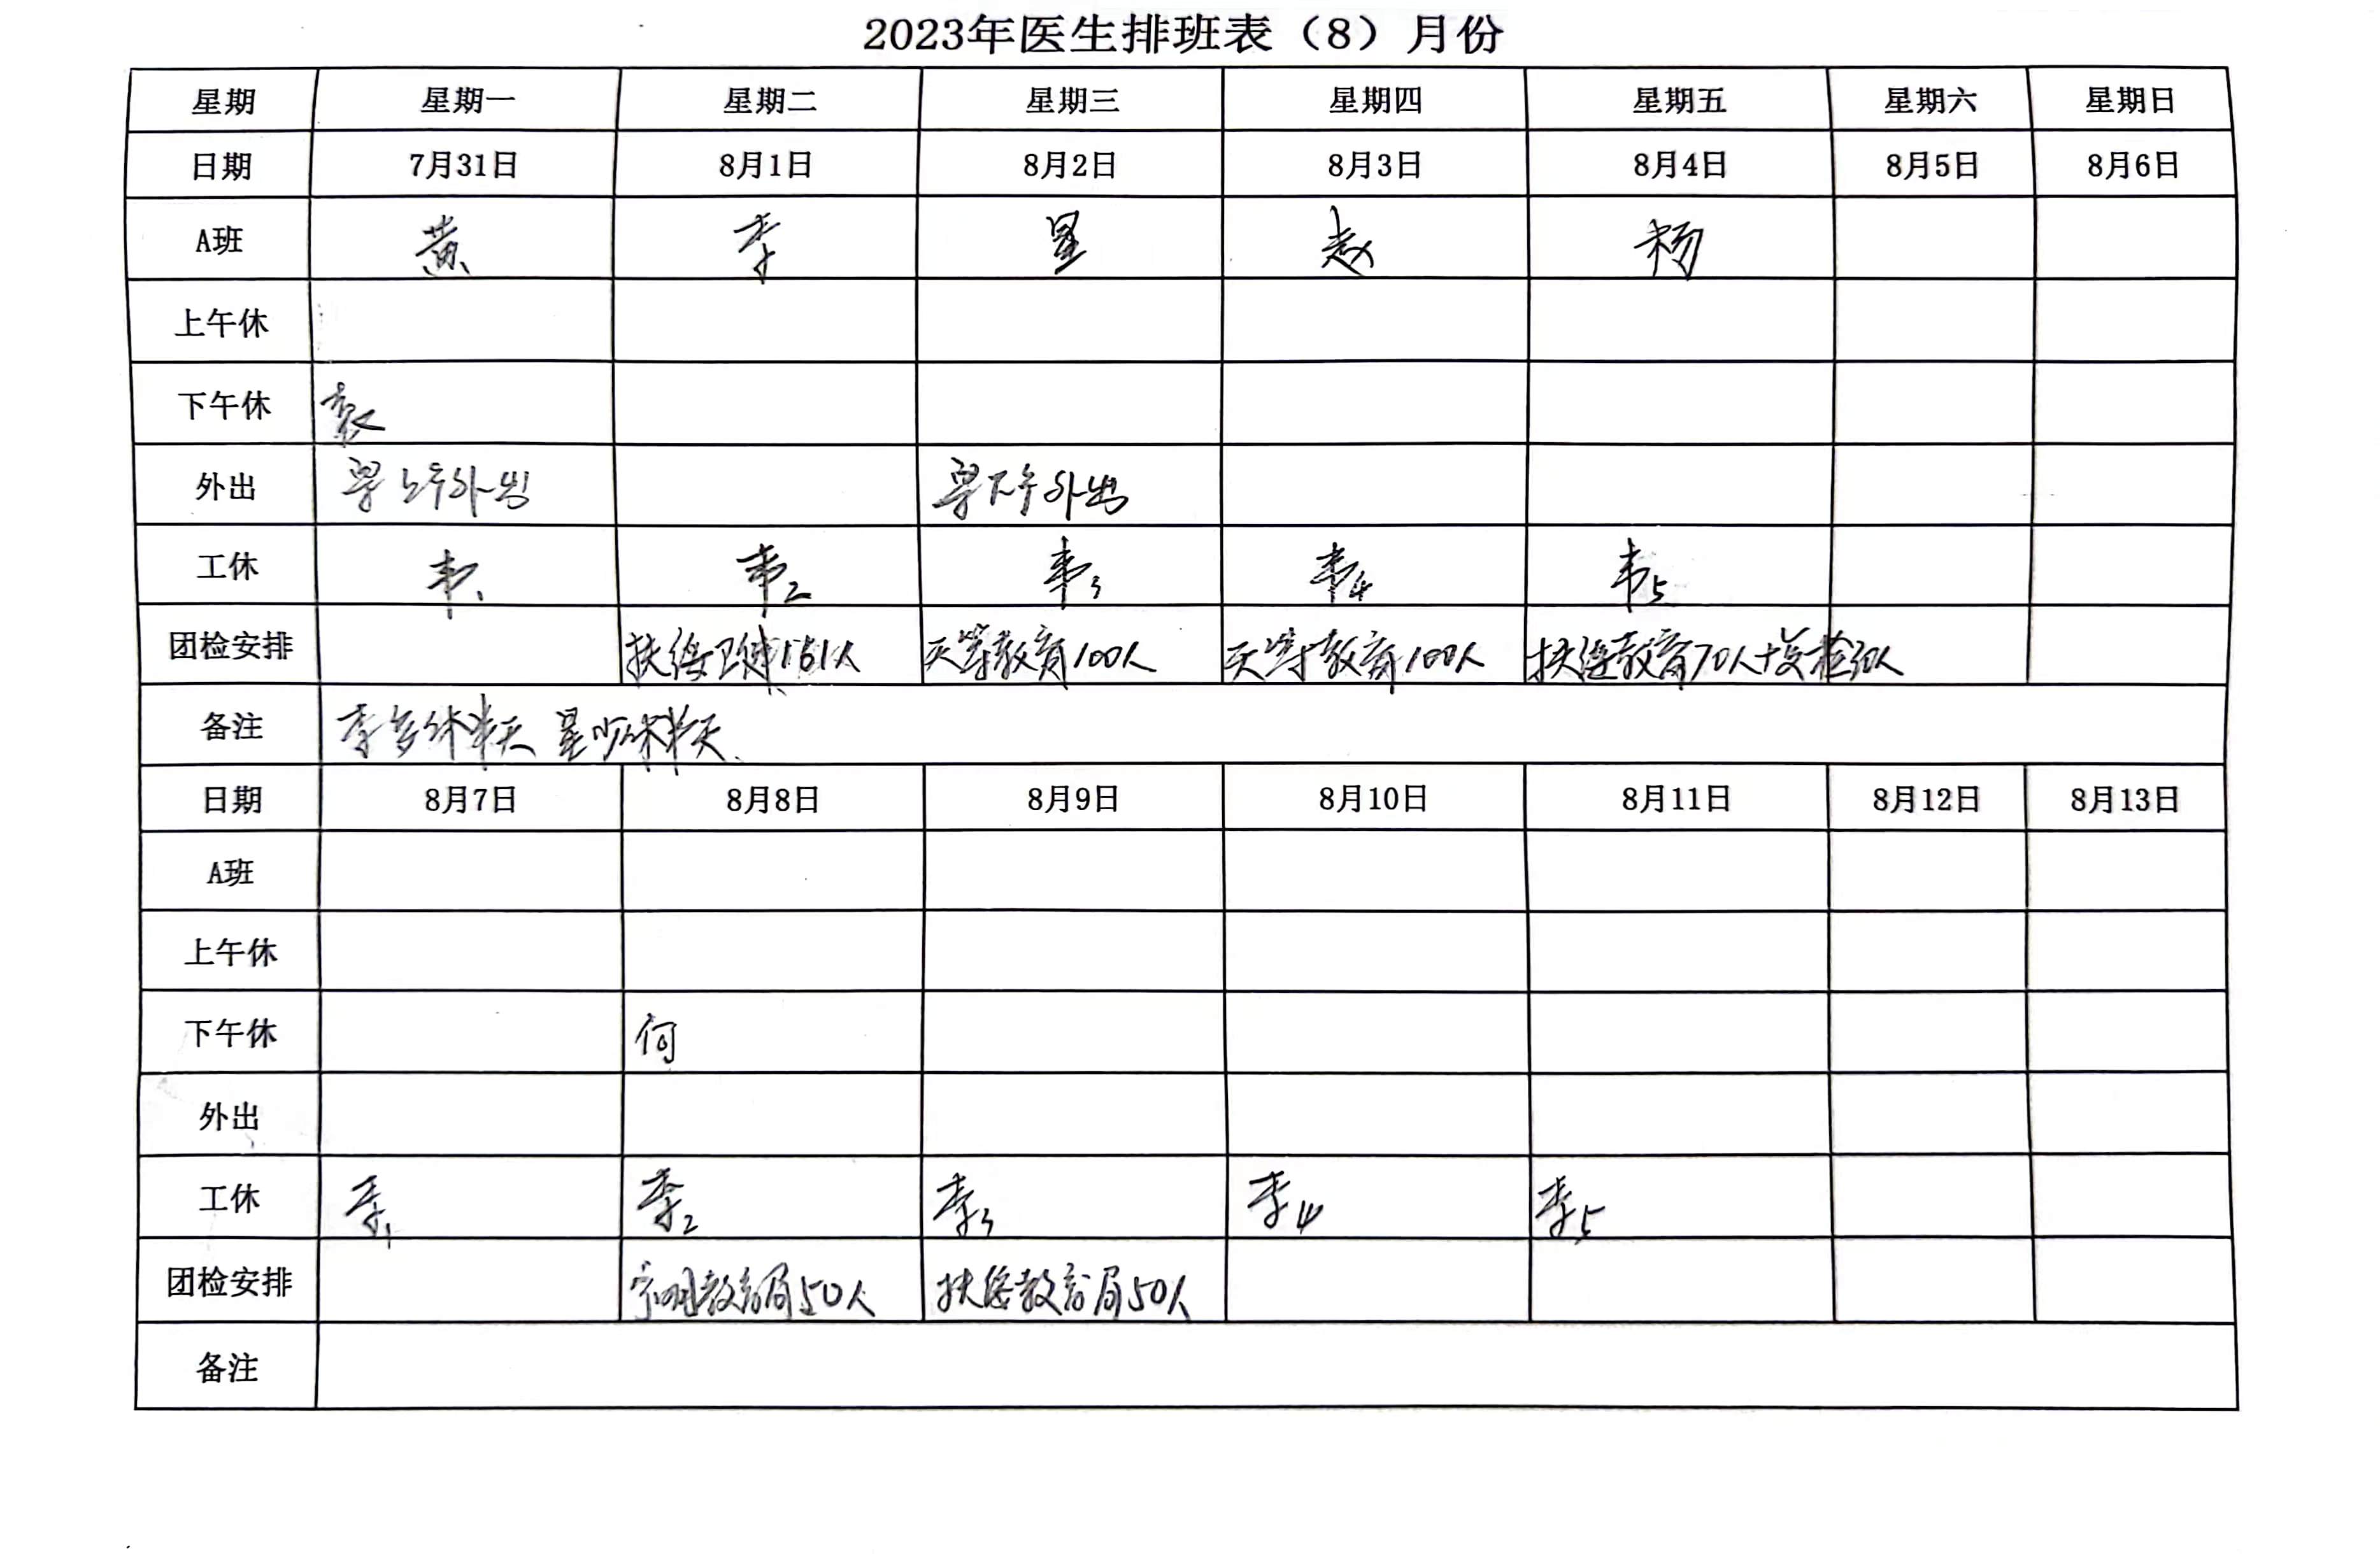 2023年医生排班表（8）月份
星期 星期一 星期二 星期三 星期四 星期五 星期六 星期日
日期 7月31日 8月1日 8月2日 8月3日 8月4日 8月5日 8月6日
A班 黄 李 星 赵 杨
上午休
下午休
外出 上午外出 下午外出
工休 韦1 韦2 韦3 韦4 韦5
团检安排 扶绥卫健161人 天等教育100人 天等教育100人 扶绥教育70人+复检
备注 李多休半天 星少休半天
日期 8月7日 8月8日 8月9日 8月10日 8月11日 8月12日 8月13日
A班
上午休
下午休 何
外出
工休 李1 李2 李3 李4 李5
团检安排 宁明教育局50人 扶绥教育局50人
备注